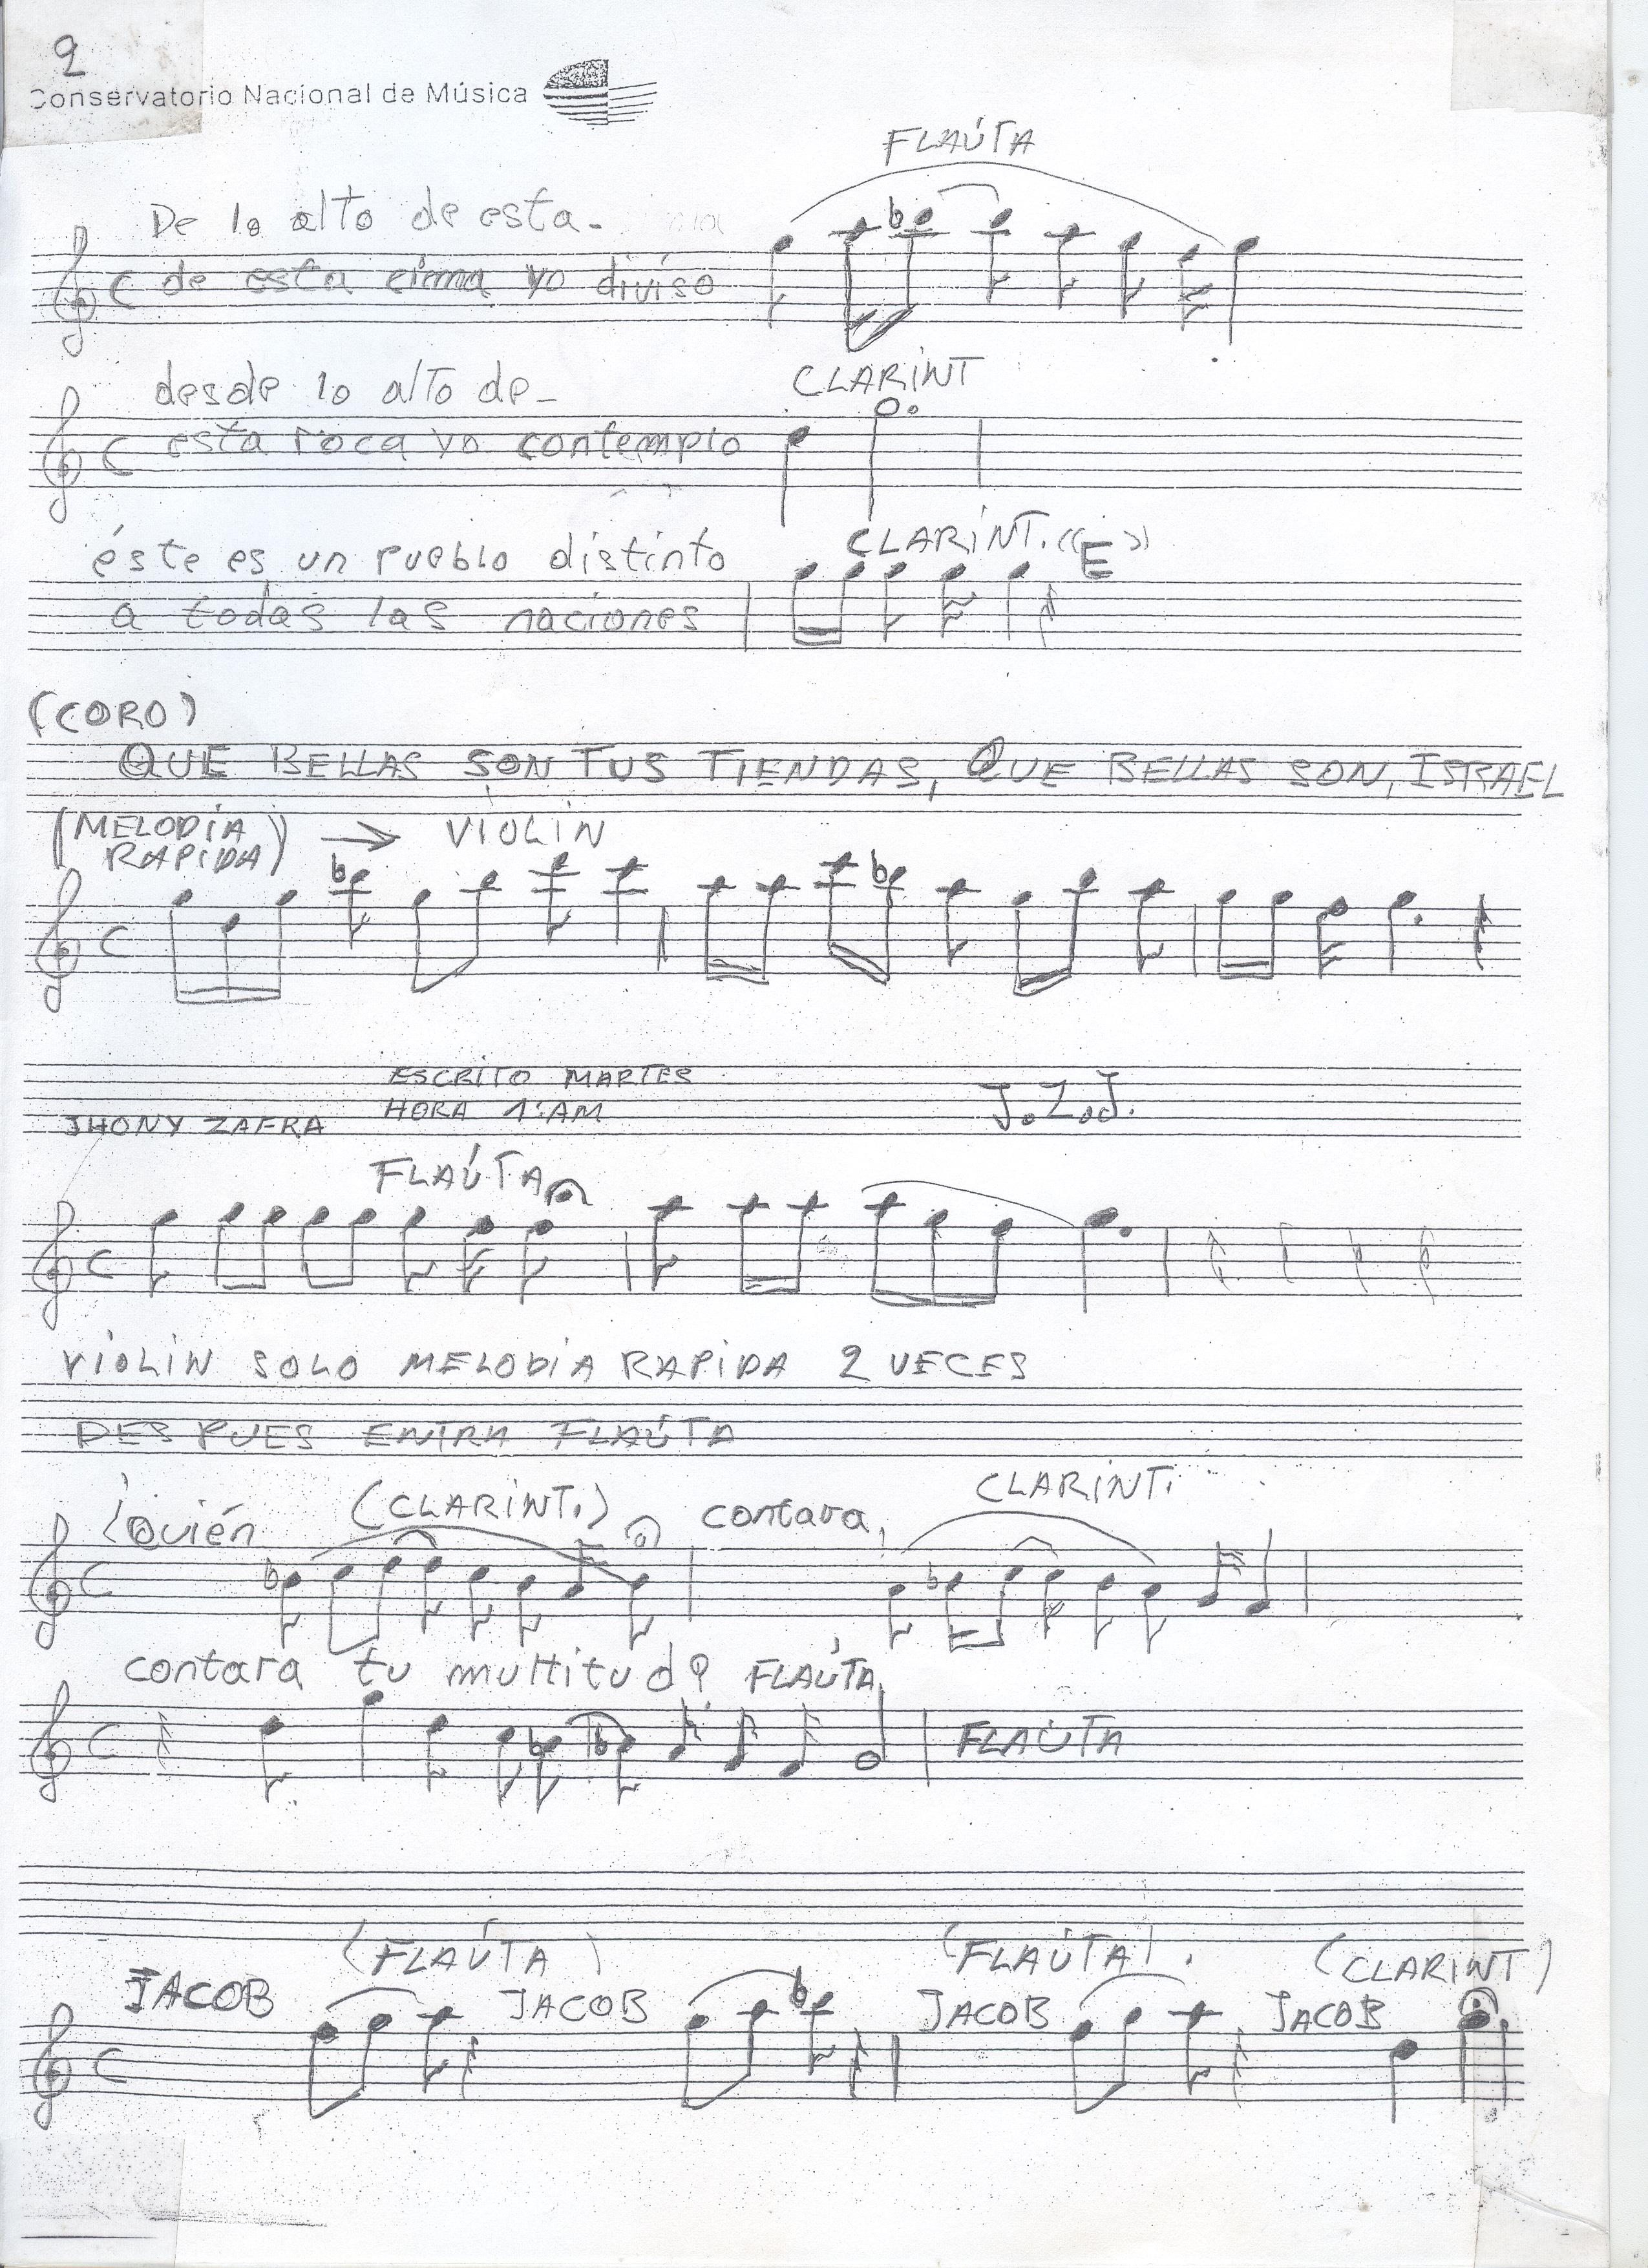 2
Conservatorio Nacional de Música
FLAÚTA
De lo alto de esta-
de esta cima yo diviso
desde lo alto de-
CLARINT
esta roca yo contemplo
éste es un pueblo distinto
CLARINT. ((E))
a todas las naciones
(CORO)
QUE BELLAS SON TUS TIENDAS, QUE BELLAS SON, ISRAEL
(MELODÍA
RAPIDA) → VIOLIN
ESCRITO MARTES
HORA 1:AM
J.Z.J.
JHONY ZAFRA
FLAÚTA
VIOLIN SOLO MELODÍA RAPIDA 2 VECES
DESPUES ENTRA FLAÚTA
¿Quién (CLARINT.) contara, CLARINT.
contara tu multitud? FLAÚTA
FLAÚTA
(FLAÚTA) (FLAÚTA). (CLARINT)
JACOB JACOB JACOB JACOB